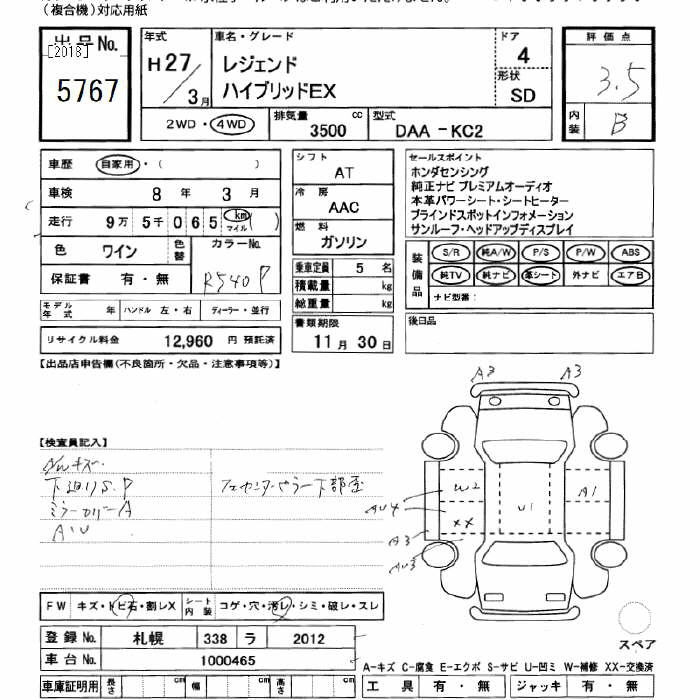 (複合機)対応用紙
出品No.
[2013]
5767
年式
H27/3月
車名・グレード
レジェンド
ハイブリッドEX
ドア
4
形状
SD
2WD・4WD
排気量
3500 cc
型式
DAA-KC2
評価点
3.5
内装
B
車歴 自家用・( )
車検 8年 3月
走行 9万5千065 km マイル ( )
色 ワイン 色替 カラーNo.
R540P
保証書 有・無
シフト
AT
冷房
AAC
燃料
ガソリン
乗車定員 5 名
積載量 kg
総重量 kg
書類期限
11月30日
セールスポイント
ホンダセンシング
純正ナビ プレミアムオーディオ
本革パワーシート・シートヒーター
ブラインドスポットインフォメーション
サンルーフ・ヘッドアップディスプレイ
装備品
S/R 純A/W P/S P/W ABS
純TV 純ナビ 革シート 外ナビ エアB
ナビ型番:
モデル年式 年 ハンドル 左・右 ディーラー・並行
リサイクル料金 12,960 円 預託済
後日品
【出品店申告欄(不良箇所・欠品・注意事項等)】
A3 A3
【検査員記入】
下廻りS.P
ミラーカバーA
A・U
W2 A1
AU4 XX U1
A3
AU3
FW キズ・トビ石・割レX シート内装 コゲ・穴・汚レ・シミ・破レ・スレ
登録No. 札幌 338 ラ 2012
車台No. 1000465
スペア
A-キズ C-腐食 E-エクボ S-サビ U-凹ミ W-補修 XX-交換済
車庫証明用 長さ cm 幅 cm 高さ cm
工具 有・無 ジャッキ 有・無